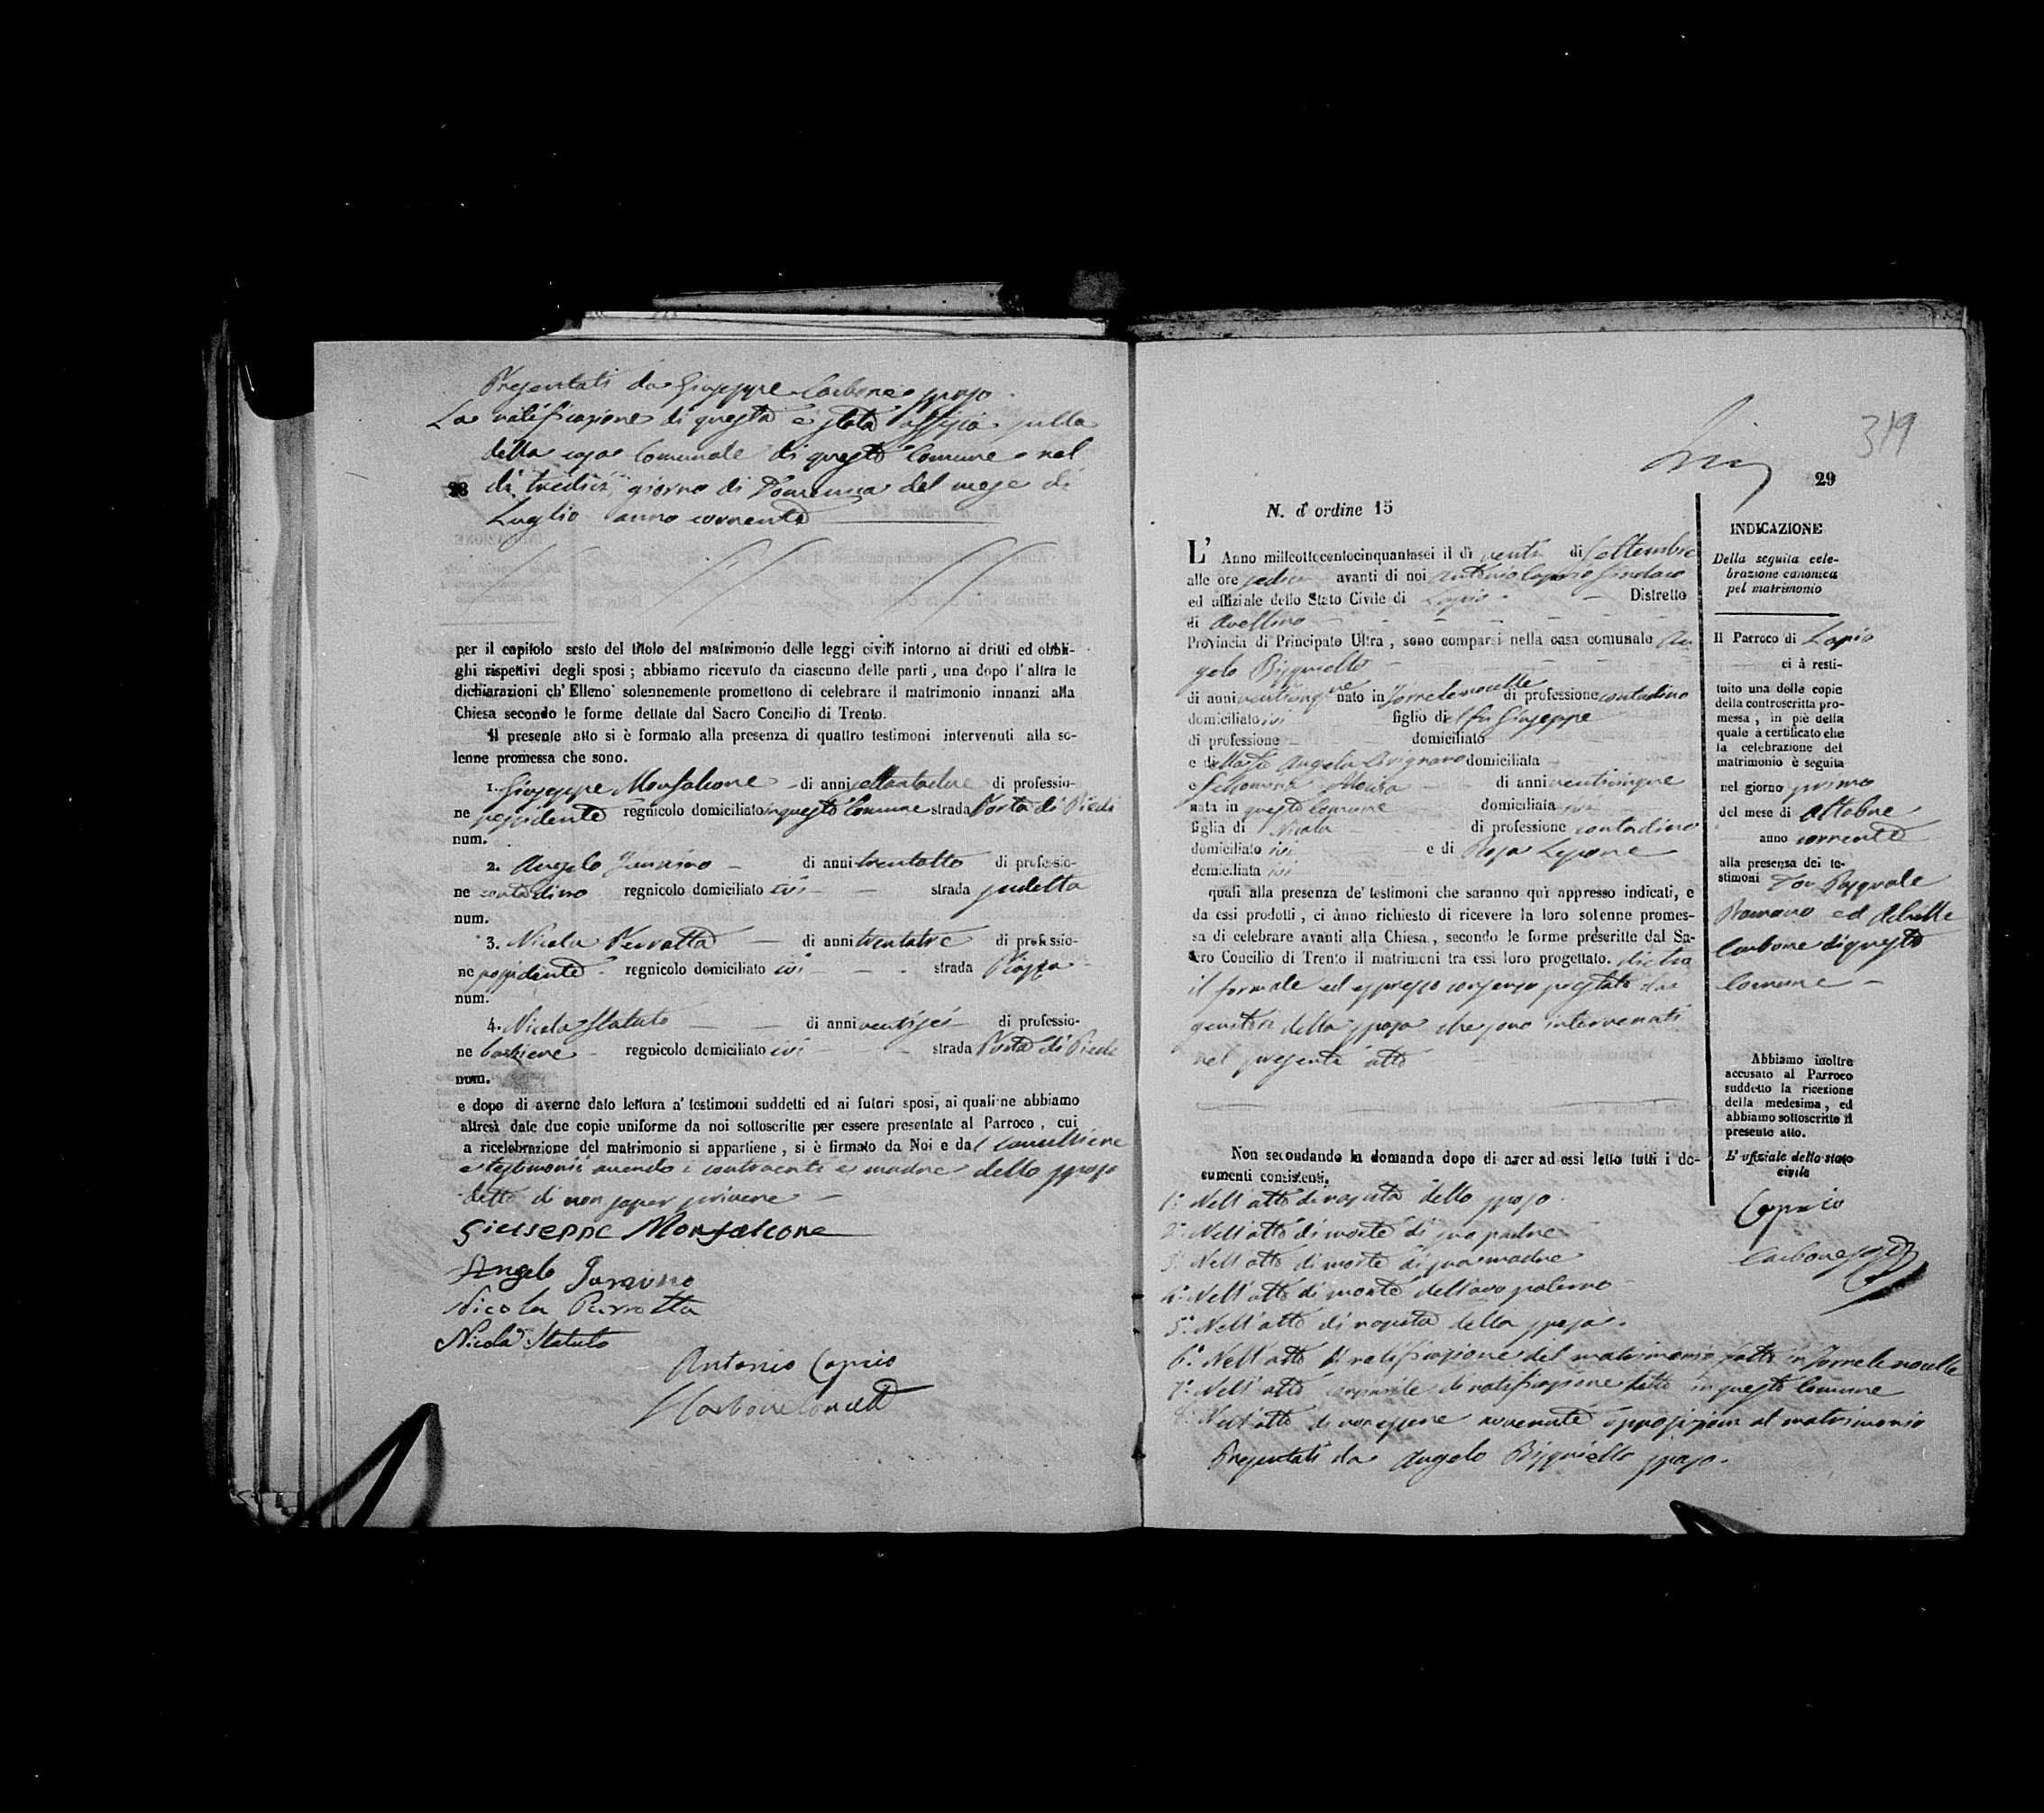 Presentati da Giuseppe Carbone sposo.
La notificazione di questa è stata affissa sulla
della casa Comunale di questo Comune nel
28 dì tredici giorno di Domenica del mese di
Luglio anno corrente
per il capitolo sesto del titolo del matrimonio delle leggi civili intorno ai dritti ed obbli-
ghi rispettivi degli sposi ; abbiamo ricevuto da ciascuno delle parti , una dopo l'altra le
dichiarazioni ch'Elleno solennemente promettono di celebrare il matrimonio innanzi alla
Chiesa secondo le forme dettate dal Sacro Concilio di Trento.
Il presente atto si è formato alla presenza di quattro testimoni intervenuti alla so-
lenne promessa che sono.
1. Giuseppe Monfalcone di anni settantadue di professio-
ne possidente regnicolo domiciliato in questo Comune strada Porta di Piedi
num.
2. Angelo di anni trentotto di professio-
ne contadino regnicolo domiciliato ivi strada
num.
3. Nicola Perrotta di anni trentatre di professio-
ne possidente regnicolo domiciliato ivi strada Piazza
num.
4. Nicola Statuto di anni ventisei di professio-
ne barbiere regnicolo domiciliato ivi strada Porta di Piedi
num.
e dopo di averne dato lettura a' testimoni suddetti ed ai futuri sposi, ai quali ne abbiamo
altresì date due copie uniforme da noi sottoscritte per essere presentate al Parroco , cui
a ricelebrazione del matrimonio si appartiene , si è firmato da Noi e dal Cancelliere
e testimonii avendo i contraenti e madre dello sposo
detto di non saper scrivere
Giuseppe Monfalcone
Angelo
Nicola Perrotta
Nicola Statuto
Antonio Caprio
Carbone
319
29
N. d'ordine 15
L' Anno milleottocentocinquantasei il dì venti di Settembre
alle ore sedici avanti di noi Antonio Caprio Sindaco
ed uffiziale dello Stato Civile di Lapio Distretto
di Avellino
Provincia di Principato Ultra , sono comparsi nella casa comunale An-
gelo Bisquiello
di anni venticinque nato in Torrelenocelle di professione contadino
domiciliato ivi figlio del fu Giuseppe
di professione domiciliato
e della fu Angela domiciliata
e Filomena di anni venticinque
nata in questo Comune domiciliata ivi
figlia di Nicola di professione contadino
domiciliato ivi e di Rosa Lepone
domiciliata ivi
quali alla presenza de' testimoni che saranno quì appresso indicati, e
da essi prodotti , ci ànno richiesto di ricevere la loro solenne promes-
sa di celebrare avanti alla Chiesa , secondo le forme prescritte dal Sa-
cro Concilio di Trento il matrimoni tra essi loro progettato. dietro
il formale ed espresso consenso prestato dai
genitori della sposa che sono intervenuti
nel presente atto
Non secondando la domanda dopo di aver ad essi letto tutti i do-
cumenti consistenti,
1.° Nell'atto di nascita dello sposo.
2.° Nell'atto di morte di suo padre
3.° Nell'atto di morte di sua madre
4.° Nell'atto di morte dell'avo paterno
5.° Nell'atto di nascita della sposa.
6.° Nell'atto di notificazione del matrimonio fatto in Torrelenocelle
7.° Nell'atto di notificazione fatto in questo Comune
8.° Nell'atto di non essere avvenute opposizioni al matrimonio
Presentati da Angelo Bisquiello sposo.
INDICAZIONE
Della seguita cele-
brazione canonica
pel matrimonio
Il Parroco di Lapio
ci à resti-
tuito una delle copie
della controscritta pro-
messa , in piè della
quale à certificato che
la celebrazione del
matrimonio è seguita
nel giorno primo
del mese di Ottobre
anno corrente
alla presenza dei te-
stimoni Don Pasquale
Romano ed Achille
Carbone di questo
Comune
Abbiamo inoltre
accusato al Parroco
suddetto la ricezione
della medesima , ed
abbiamo sottoscritto il
presente atto.
L' ufiziale dello stato
civile
Caprio
Carbone